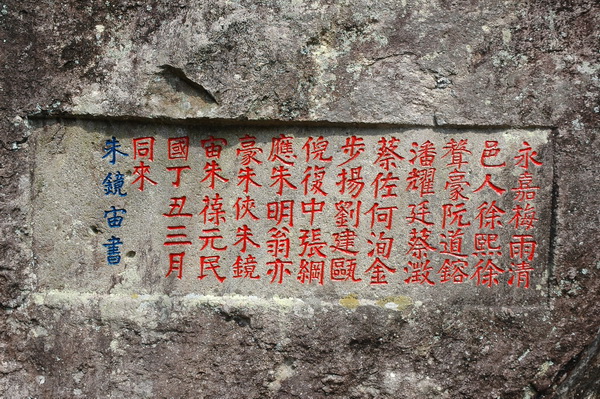 永嘉梅雨清
邑人徐熙徐
聲豪阮道鎔
潘耀廷蔡澂
蔡佐何洵金
步揚劉建甌
倪復中張綱
應朱明翁亦
豪朱俠朱鏡
宙朱葆元民
國丁丑三月
同來
朱鏡宙書